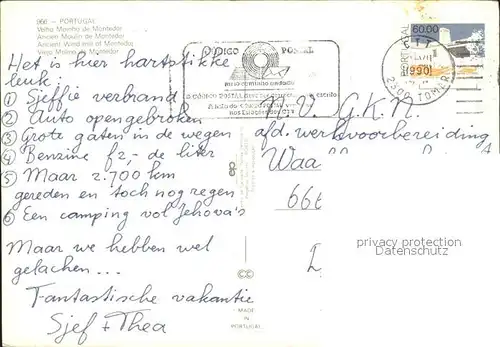 966 - PORTUGAL
Velho Moinho de Montedor
Ancien Moulin de Montedor
Ancient Wind mill of Montedor
Vieja Molino de Montedor
Het is hier hartstikke
leuk:
① Sjeffie verbrand
② Auto opengebroken
③ Grote gaten in de wegen
④ Benzine f2,- de liter
⑤ Maar 2.700 km
gereden en toch nog regen
⑥ Een camping vol Jehova's
Maar we hebben wel
gelachen...
Fantastische vakantie
Sjef + Thea
CÓDIGO POSTAL
60.00
CTT
2300 TOMAR
V. G.K.N.
afd. werkvoorbereiding
Waa
66
privacy protection
Datenschutz
MADE
IN
PORTUGAL